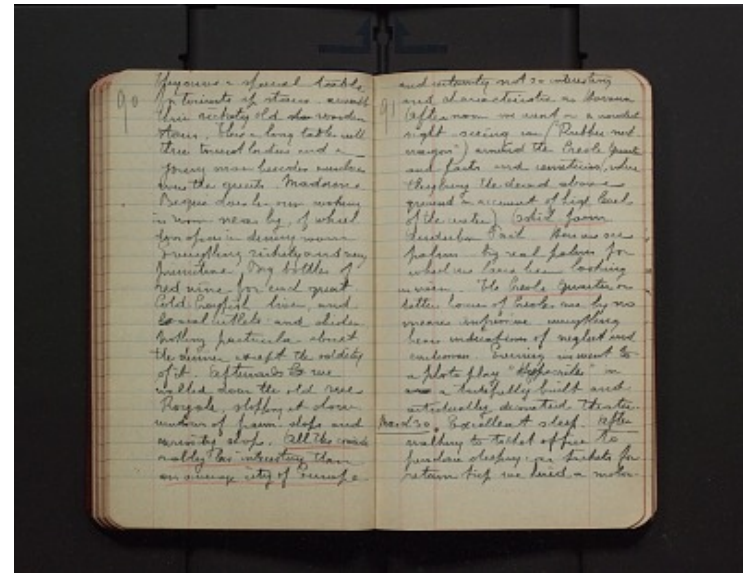 90
for tourists up stairs around
this rickety old wooden
stair. Has a long table with
three tourist ladies and a
young man besides ourselves
were the guests. Madame
Begue does her own cooking
in room near by, of which
door open in dining room
Everything rickety and very
primitive. Big bottles of
red wine for each guest
Cold Crayfish, liver, and
veal cutlets and
Nothing particular about
the dinner except the oddity
of it. Afterwards we
walked down the old rue
Royale, stopping at
windows of pawn shops and
curiosity shops. (all this
less interesting than
an average city of Europe
91
and certainly not so interesting
and characteristic as Havana
Afternoon we went in a
sight-seeing car ("Rubber neck
wagon") around the Creole Quarter
and parks and cemeteries, where
they bury the dead above
ground on account of high level
of the water)
Audubon Park. Here we see
palms - big real palms for
which we have been looking
in vain. The Creole quarter or
better houses of Creole are by no
means everything
bears indications of neglect and
Evening we went to
a photo play "Hypocrites" in
a tastefully built and
artistically decorated theatre.
March 30. Excellent sleep. After
walking to ticket office to
purchase sleeping car tickets for
return trip we hired a motor